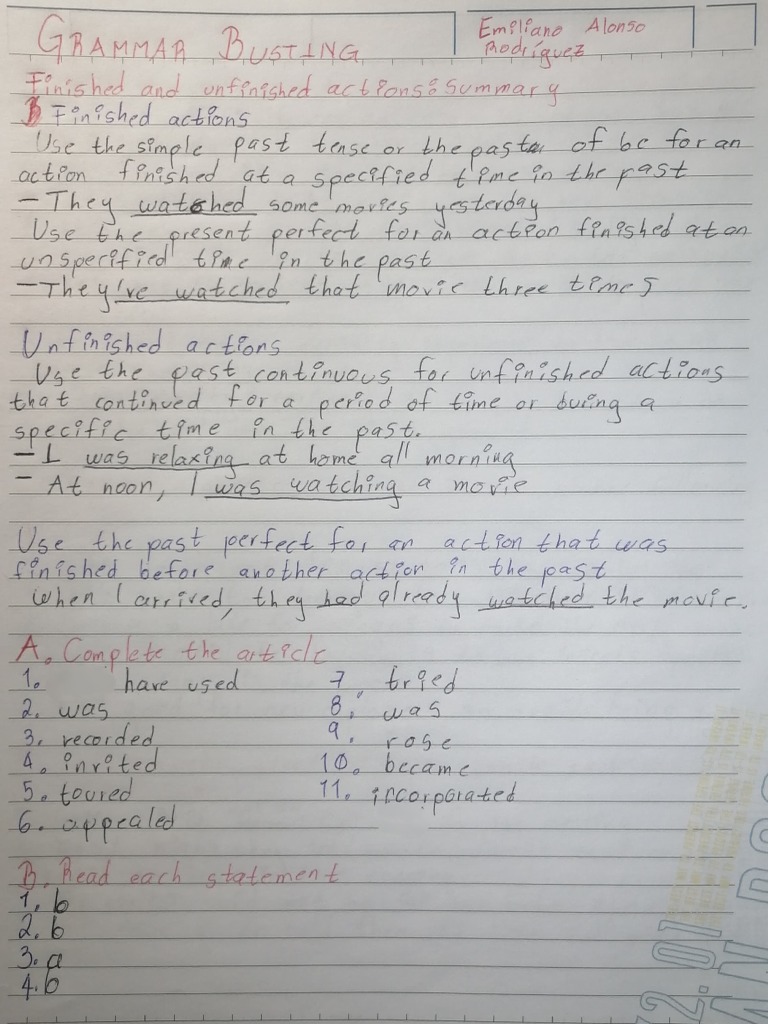 GRAMMAR BUSTING
Emiliano Alonso
Rodríguez
Finished and unfinished actions: Summary
Finished actions
Use the simple past tense or the past of be for an
action finished at a specified time in the past
- They watched some movies yesterday
Use the present perfect for an action finished at an
unspecified time in the past
- They've watched that movie three times
Unfinished actions
Use the past continuous for unfinished actions
that continued for a period of time or during a
specific time in the past.
- I was relaxing at home all morning
- At noon, I was watching a movie
Use the past perfect for an action that was
finished before another action in the past
When I arrived, they had already watched the movie.
A. Complete the article
1. have used
2. was
3. recorded
4. invited
5. toured
6. appealed
7. tried
8. was
9. rose
10. became
11. incorporated
B. Read each statement
1. b
2. b
3. a
4. b